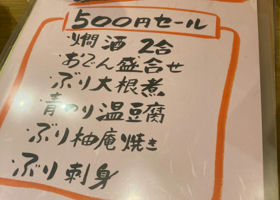 500円セール
・燗酒 2合
・おでん盛合せ
・ぶり大根煮
・青のり温豆腐
・ぶり柚庵焼き
・ぶり刺身